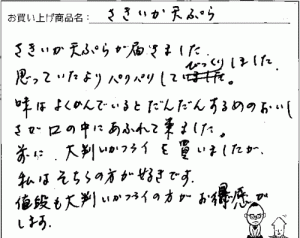 お買い上げ商品名： さきいか天ぷら
さきいか天ぷらが届きました。
思っていたよりパリパリしてびっくりしました。
味はよくかんでいるとだんだんするめのおいし
さが口の中にあふれて来ました。
前に、大判いかフライを買いましたが、
私はそちらの方が好きです。
値段も大判いかフライの方がお得感が
します。